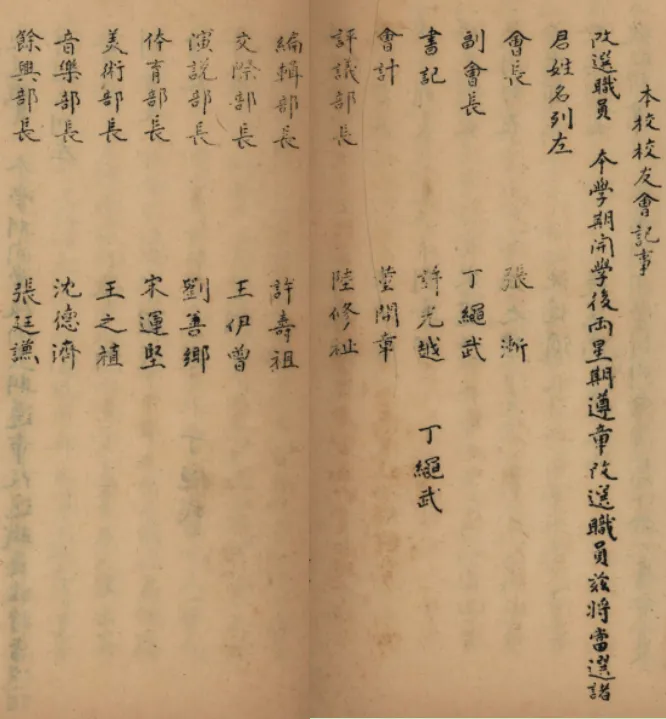 本校校友會記事
改選職員 本學期開學後兩星期遵章改選職員茲將當選諸
君姓名列左
會長 張之漸
副會長 丁繩武
書記 許元越 丁繩武
會計 董開章
評議部長 陸修祉
編輯部長 許壽祖
交際部長 王伊曾
演說部長 劉善鄉
体育部長 宋運堅
美術部長 王之植
音樂部長 沈德濟
餘興部長 張廷謙